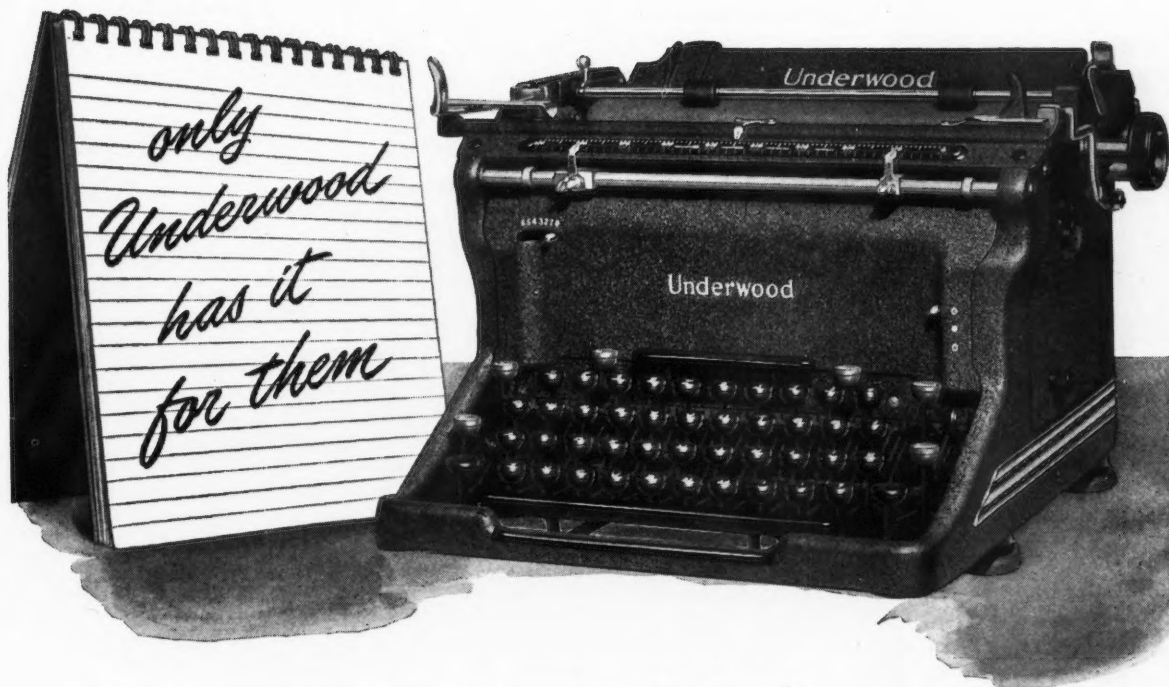 only
Underwood
has it
for them
Underwood
Underwood